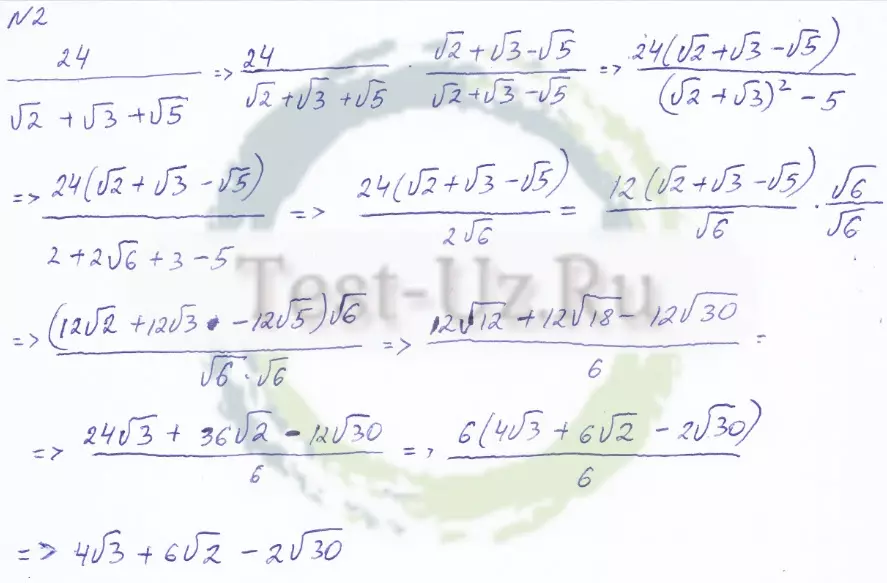 N2
24/(√2 + √3 + √5) => 24/(√2 + √3 + √5) · (√2 + √3 - √5)/(√2 + √3 - √5) => 24(√2 + √3 - √5)/((√2 + √3)² - 5)
=> 24(√2 + √3 - √5)/(2 + 2√6 + 3 - 5) => 24(√2 + √3 - √5)/(2√6) = 12(√2 + √3 - √5)/√6 · √6/√6
Test-Uz.Ru
=> (12√2 + 12√3 - 12√5)√6/(√6 · √6) => (12√12 + 12√18 - 12√30)/6 =
=> (24√3 + 36√2 - 12√30)/6 =, 6(4√3 + 6√2 - 2√30)/6
=> 4√3 + 6√2 - 2√30